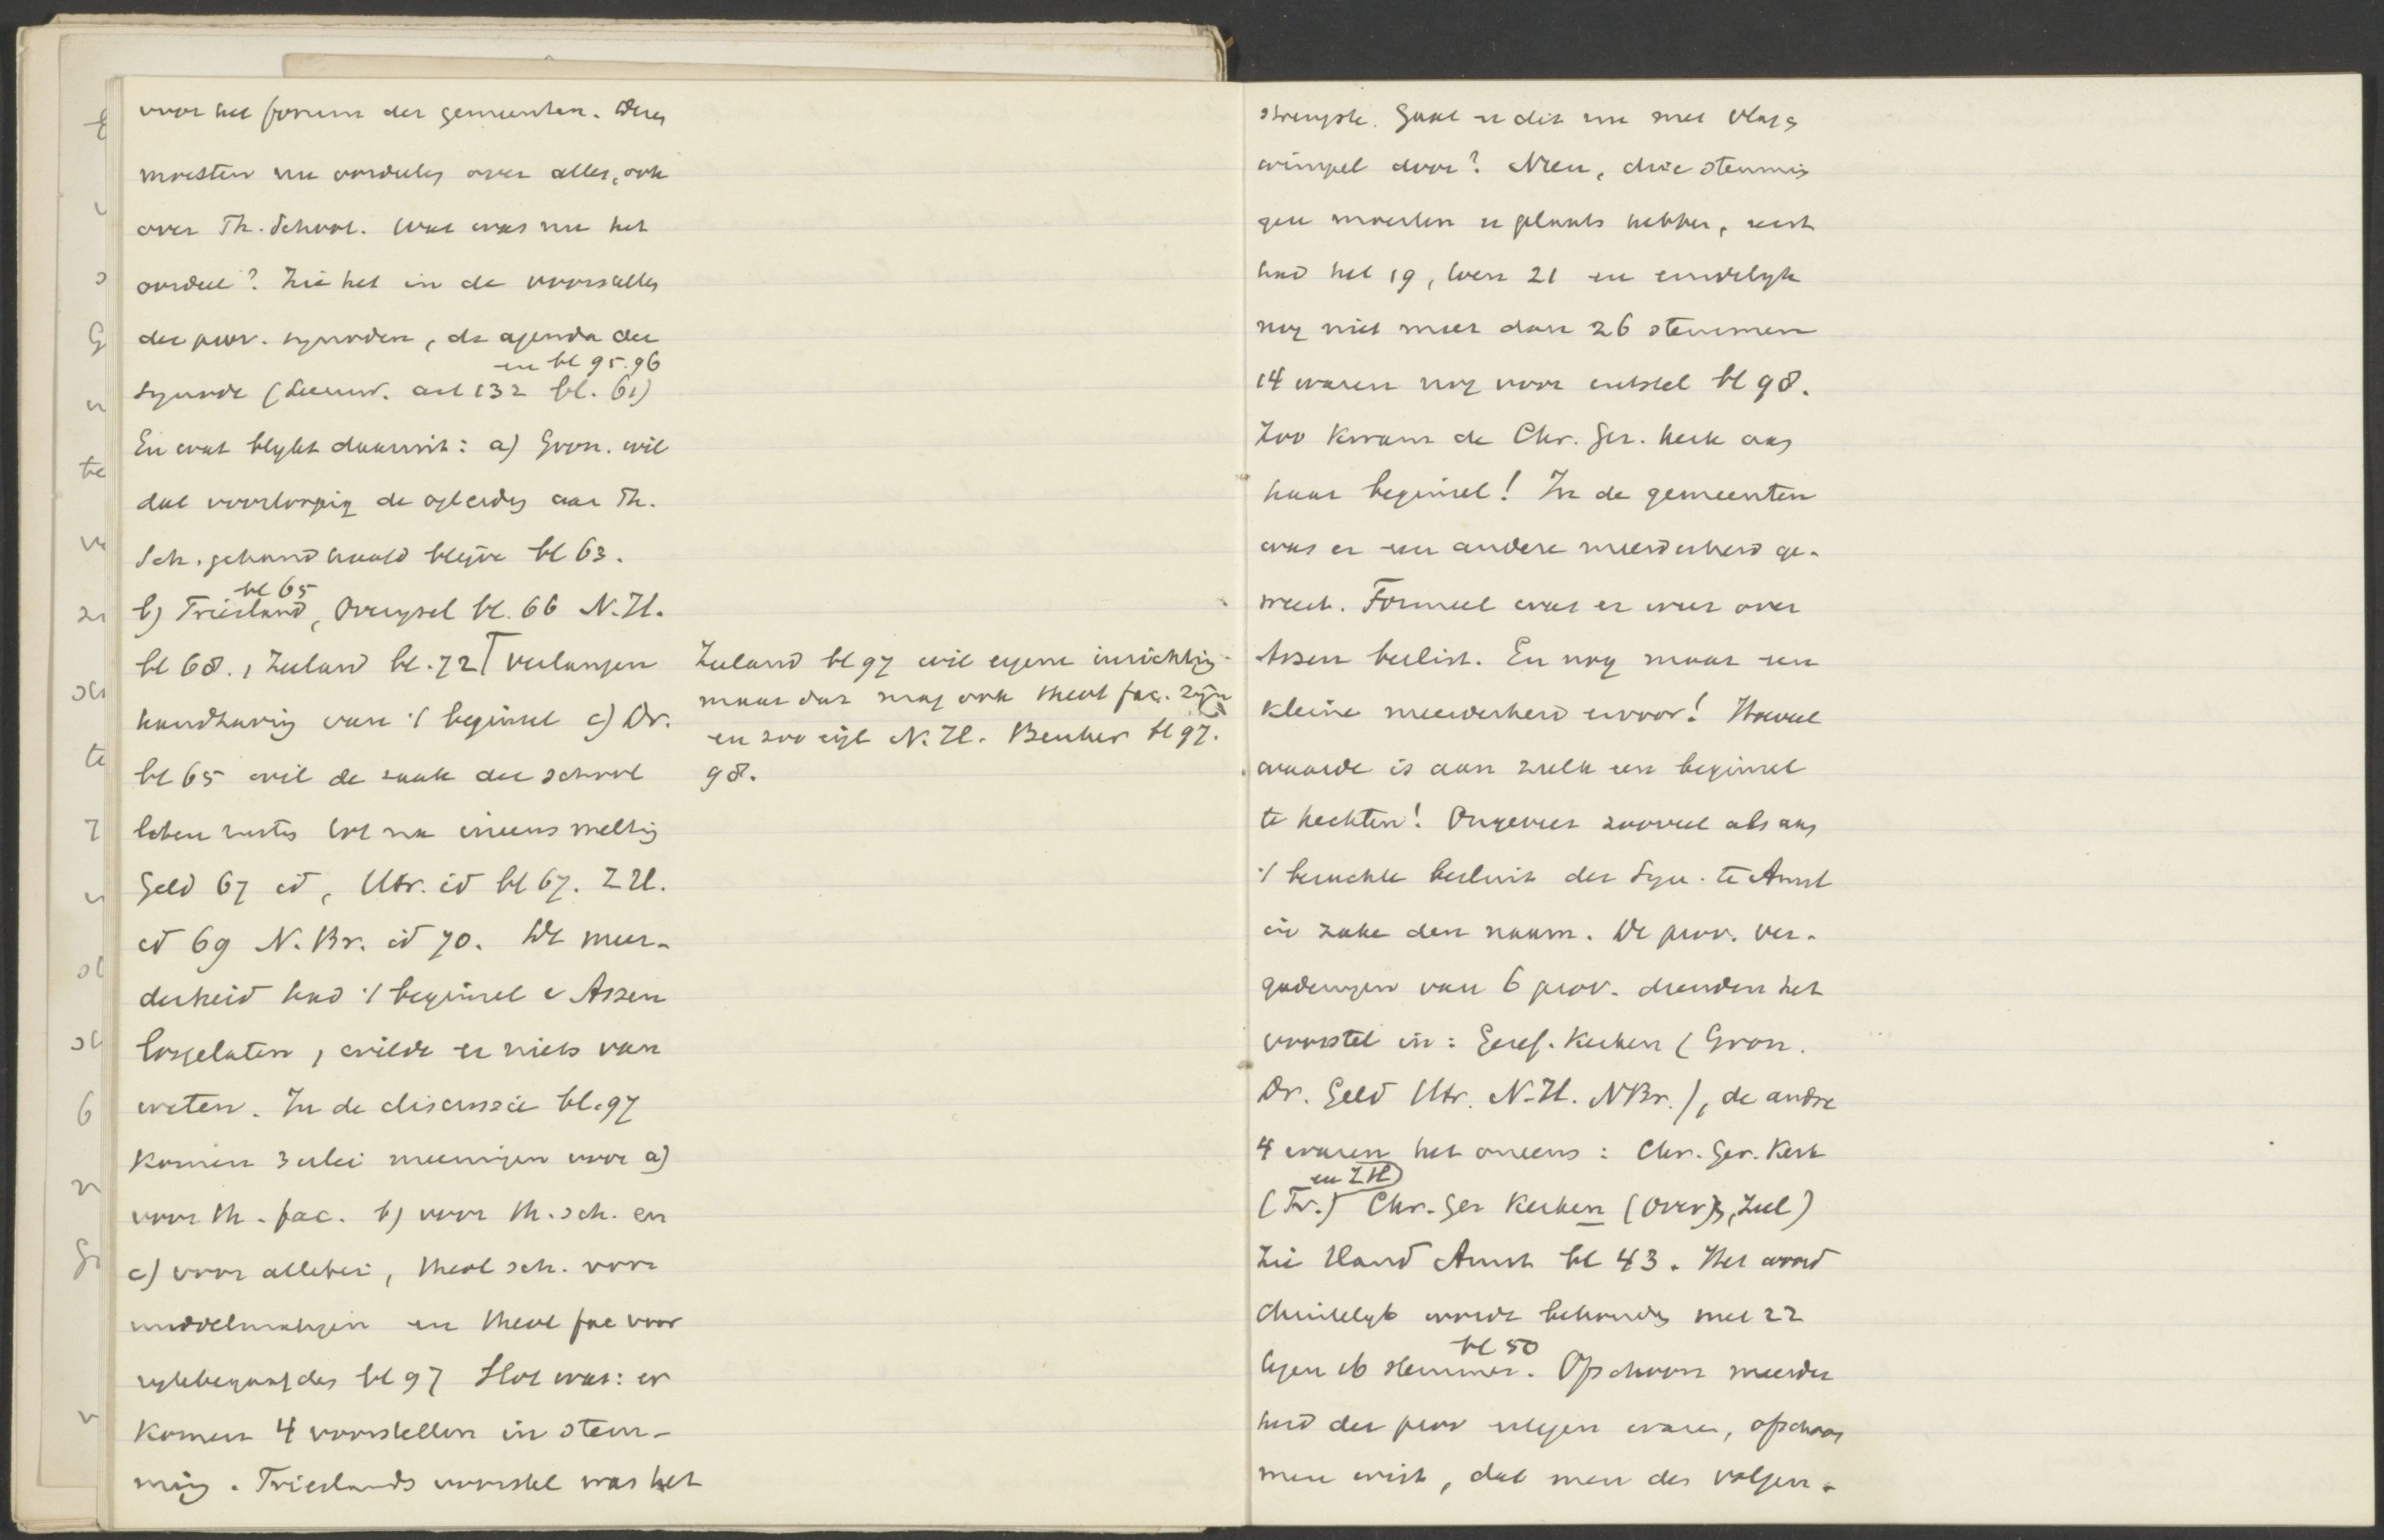 voor het forum der gemeenten. Deze
moesten nu oordeelen over alles, ook
over Th. School. Wat was nu het
oordeel? Zie het in de voorstellen
der prov. synoden, de agenda der
en bl 95.96
Synode (Leeuw. art 132 bl. 61)
En wat blykt daaruit: a) Gron. wil
dat voorloopig de opleiding aan Th.
Sch. gehandhaafd blijve bl 63.
bl 65
b) Friesland, Overysel bl. 66 N.H.
bl 68., Zeeland bl. 72 verlangen
handhaving van 't beginsel c) Dr.
bl 65 wil de zaak der school
laten rusten tot na ineensmelting
Geld 67 id, Utr. id bl 67. Z H.
id 69 N. Br. id 70. De meer-
derheid had 't beginsel v Assen
losgelaten, wilde er niets van
weten. In de discussie bl. 97
komen 3 erlei meeningen voor a)
voor th. fac. b) voor th. sch. en
c) voor allebei, theol sch. voor
middelmatigen en theol fac voor
rykbegaafden bl 97 Slot was: er
komen 4 voorstellen in stem-
ming. Frieslands voorstel was het
Zeeland bl 97 wil eigene inrichting
maar dat mag ook theol fac. zijn
en zoo wijl N. H. Beuker bl 97.
98.
strengste. Gaat er dit nu met vlag &
wimpel door? Neen, drie stemmin
gen moesten er plaats hebben, eerst
had het 19, toen 21 en eindelyk
nog niet meer dan 26 stemmen
14 waren nog voor uitstel bl 98.
Zoo kwam de Chr. Ger. Kerk aan
haar beginsel! In de gemeenten
was er een andere meerderheid ge-
weest. Formeel was er weer over
Assen beslist. En nog maar een
kleine meerderheid ervoor! Hoeveel
waarde is aan zulk een beginsel
te hechten! Ongeveer zooveel als aan
't beruchte besluit der Syn. te Amst
in zake den naam. De prov. ver-
gaderingen van 6 prov. dienden het
voorstel in: Geref. Kerken (Gron.
Dr. Geld Utr. N.H. NBr.), de andre
4 waren het oneens: Chr. Ger. Kerk
en ZH)
(Fr.) Chr. Ger Kerken (Over, Zeel)
Zie Hand Amst bl 43. Het woord
Christelyk wordt behouden met 22
bl 50
tegen 16 stemmen. Ofschoon meerder
heid der prov ertegen waren, ofschoon
men wist, dat men des volgen-